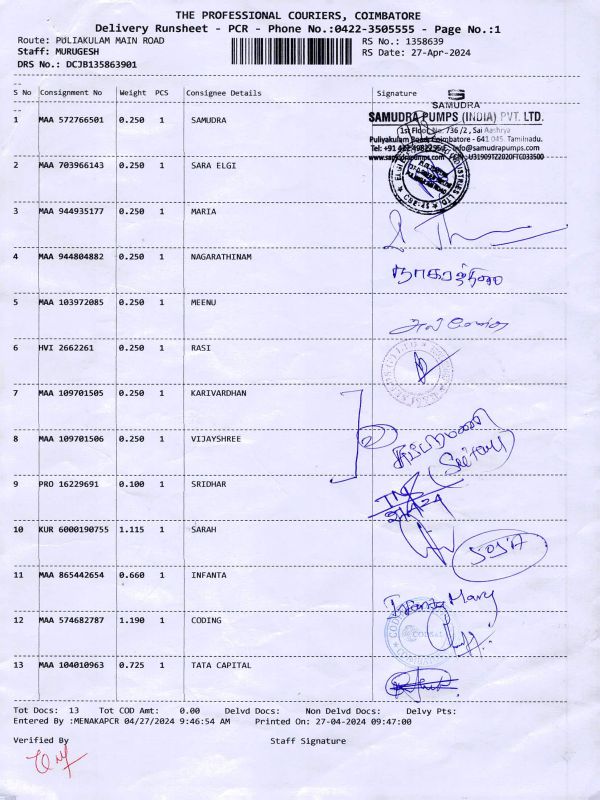 THE PROFESSIONAL COURIERS, COIMBATORE
Delivery Runsheet - PCR - Phone No.:0422-3505555 - Page No.:1
Route: PULIAKULAM MAIN ROAD RS No.: 1358639
Staff: MURUGESH RS Date: 27-Apr-2024
DRS No.: DCJB135863901
S No Consignment No Weight PCS Consignee Details Signature
SAMUDRA
1 MAA 572766501 0.250 1 SAMUDRA SAMUDRA PUMPS (INDIA) PVT. LTD.
1st Floor, No. 736 /2 , Sai Aashrya
Puliyakulam Road, Coimbatore - 641 045. Tamilnadu.
info@samudrapumps.com
www.samudrapumps.com
2 MAA 703966143 0.250 1 SARA ELGI
CBE-45
3 MAA 944935177 0.250 1 MARIA
4 MAA 944804882 0.250 1 NAGARATHINAM
5 MAA 103972085 0.250 1 MEENU
6 HVI 2662261 0.250 1 RASI
7 MAA 109701505 0.250 1 KARIVARDHAN
8 MAA 109701506 0.250 1 VIJAYSHREE
9 PRO 16229691 0.100 1 SRIDHAR
10 KUR 6000190755 1.115 1 SARAH
11 MAA 865442654 0.660 1 INFANTA
Infanta Mary
12 MAA 574682787 1.190 1 CODING
13 MAA 104010963 0.725 1 TATA CAPITAL
Tot Docs: 13 Tot COD Amt: 0.00 Delvd Docs: Non Delvd Docs: Delvy Pts:
Entered By :MENAKAPCR 04/27/2024 9:46:54 AM Printed On: 27-04-2024 09:47:00
Verified By Staff Signature